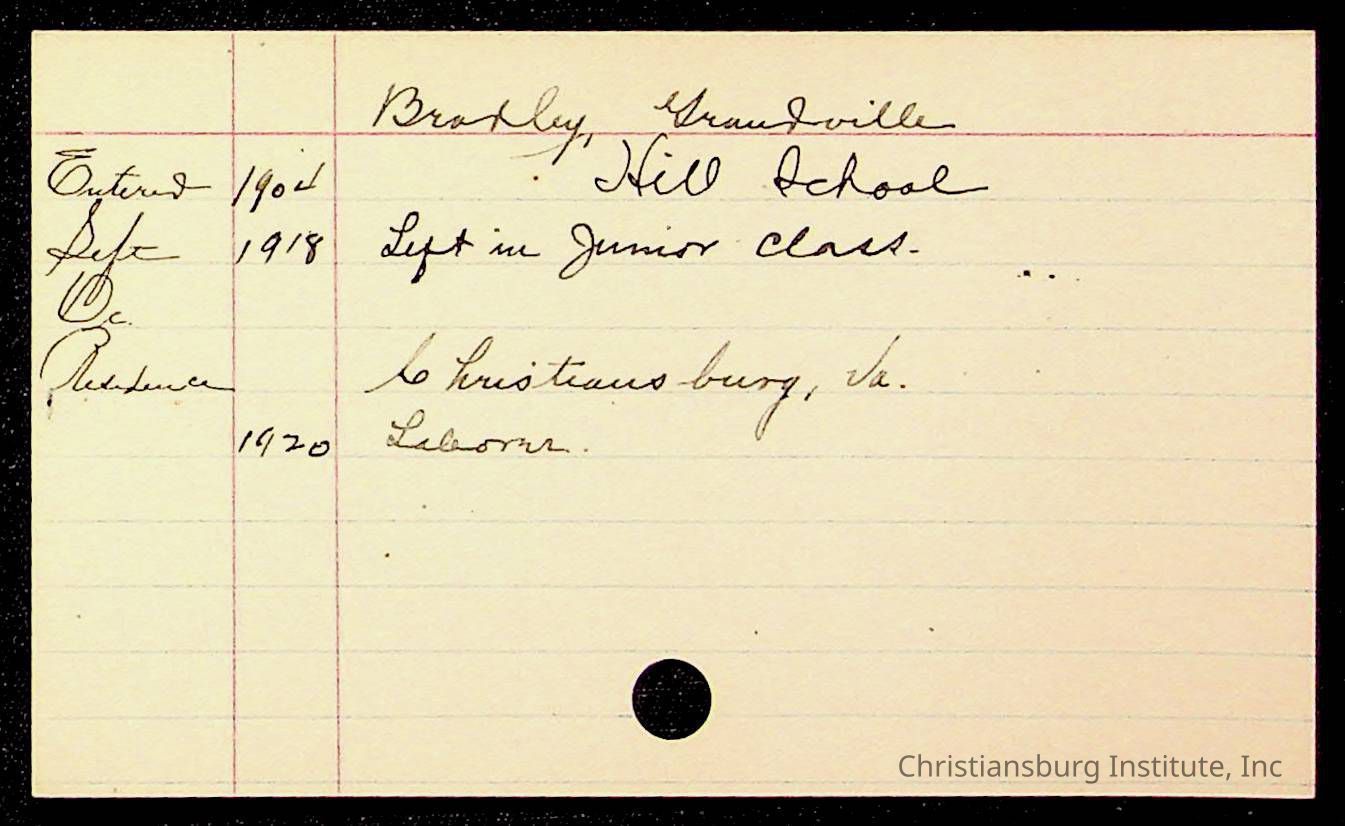 Bradley, Grandville
Entered 1904 Hill School
Left 1918 Left in Junior Class.
Oc.
Residence Christiansburg, Va.
1920 Laborer.
Christiansburg Institute, Inc